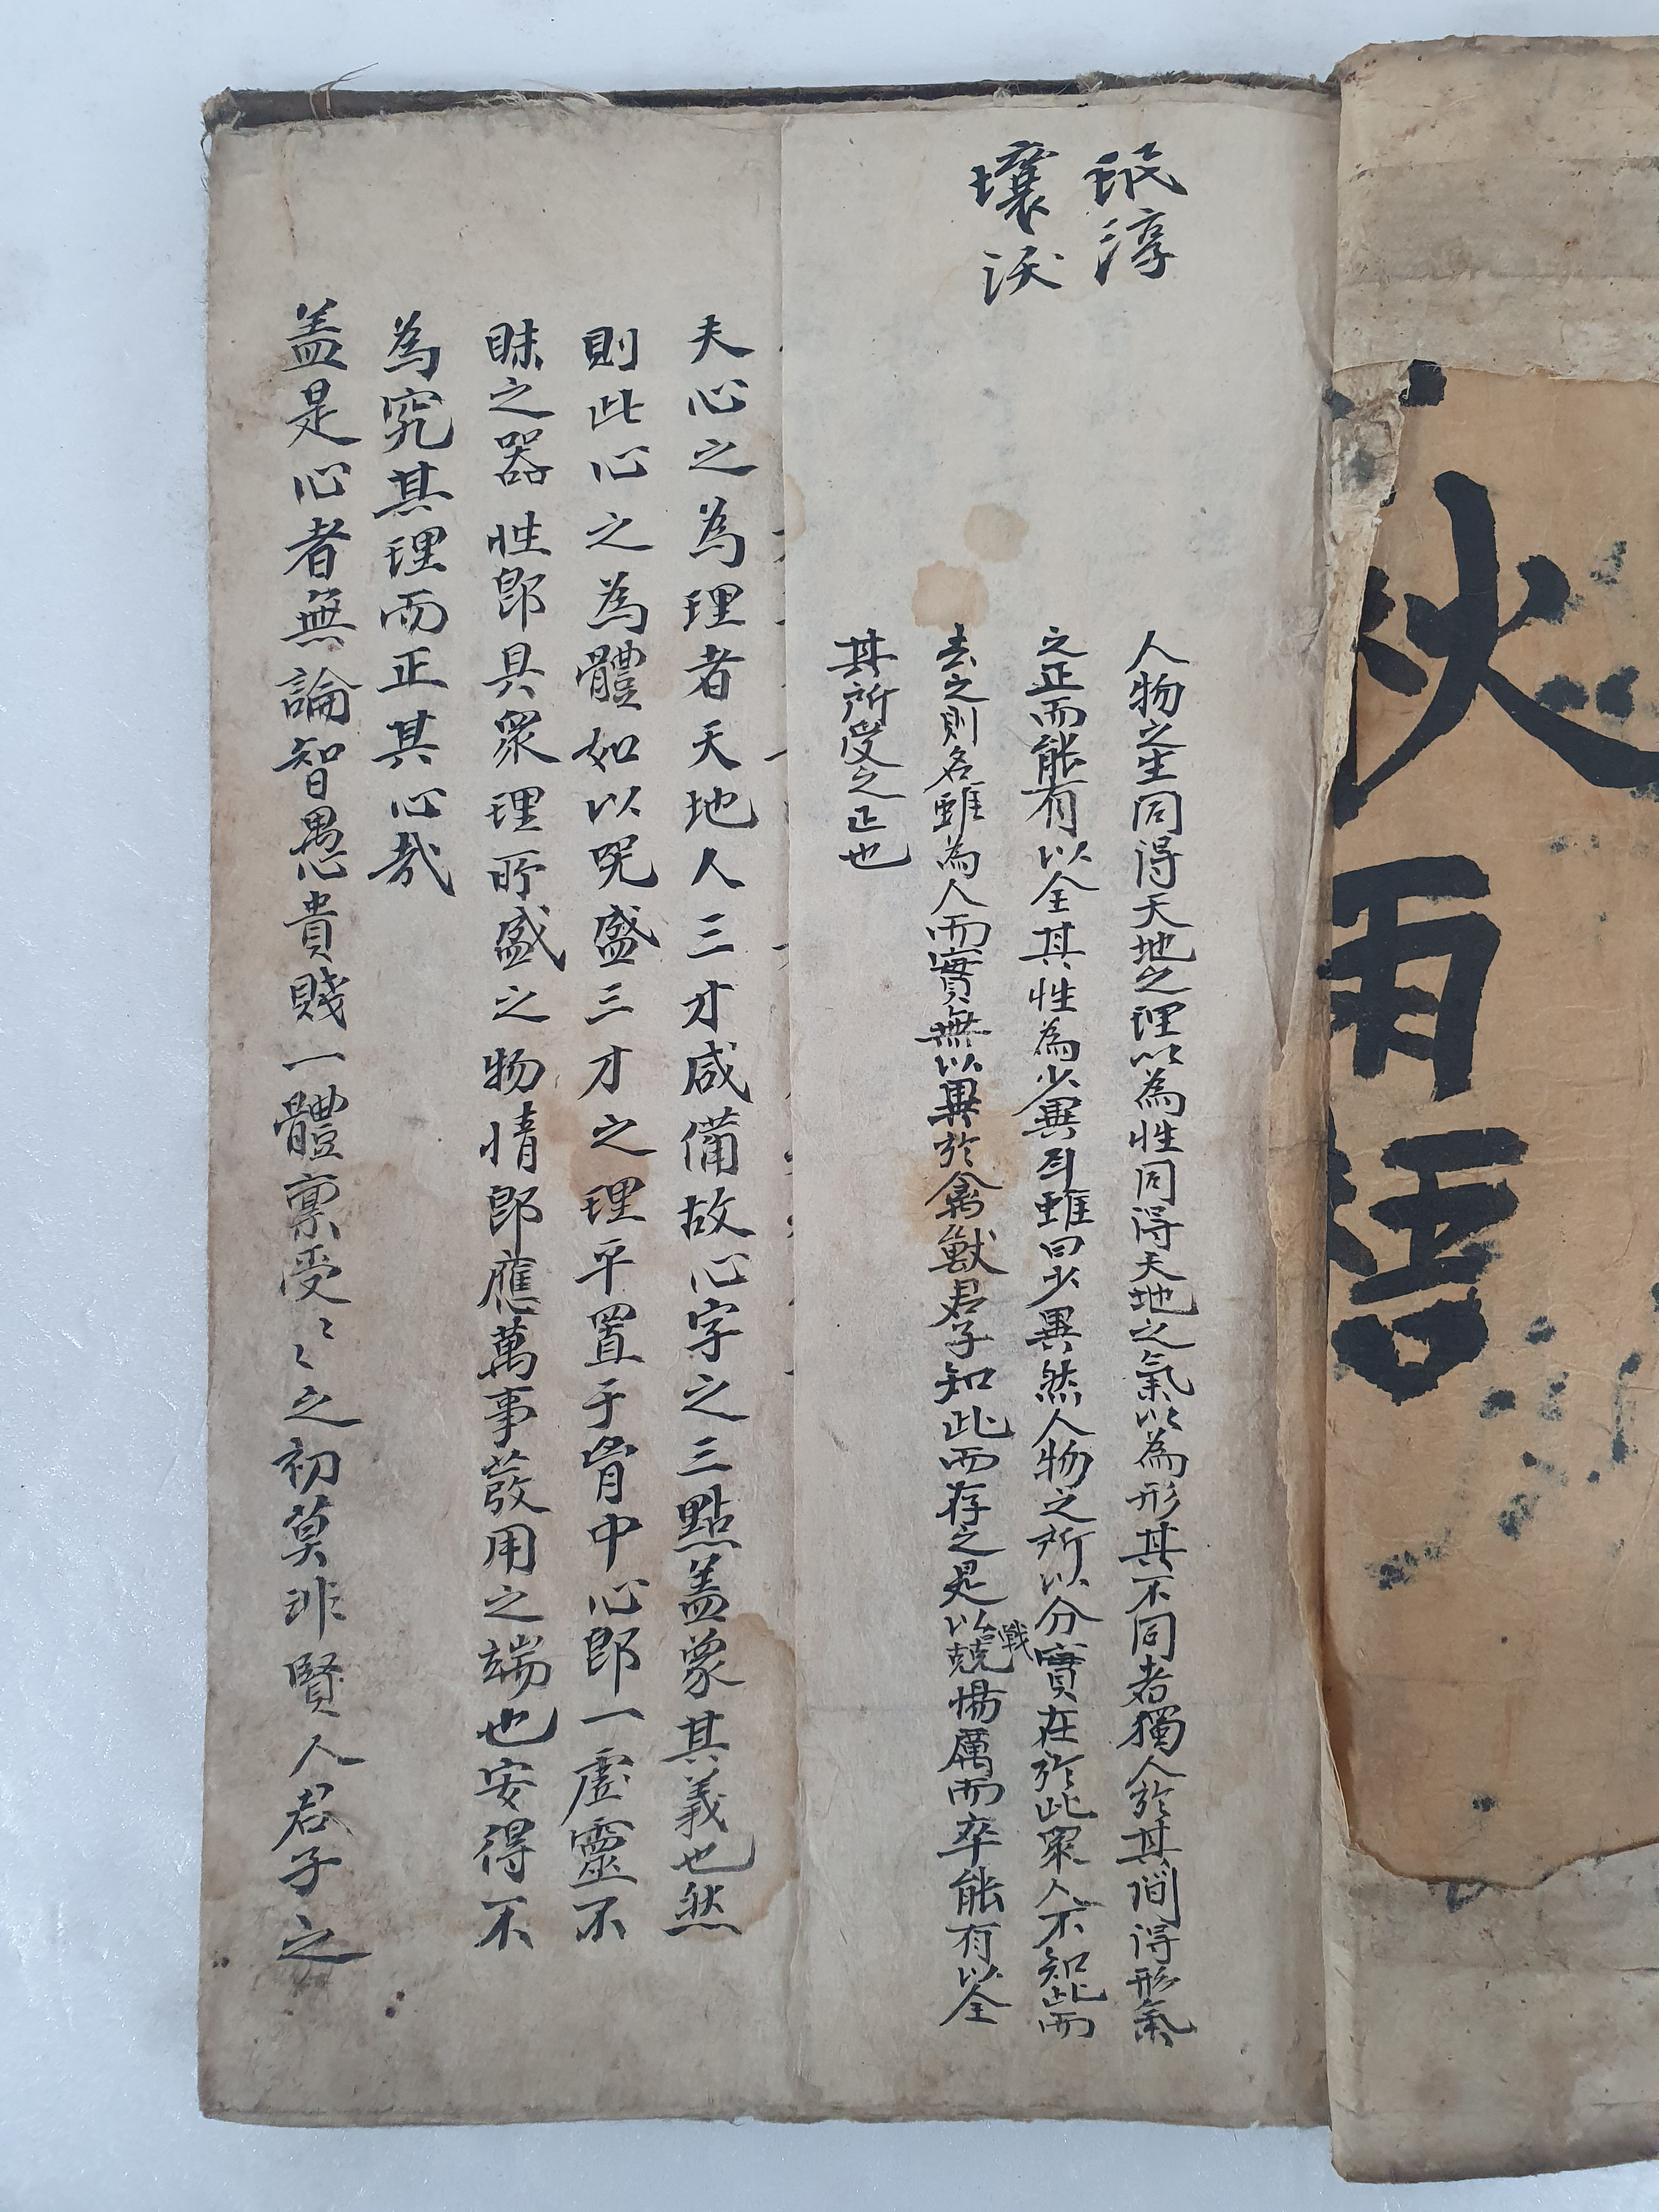 秋雨梧
珉淳
壤沃
人物之生同得天地之理以為性同得天地之氣以為形其不同者獨人於其間得形氣
之正而能有以全其性為少異耳雖曰少異然人物之所以分實在於此衆人不知此而
去之則名雖為人而實無以異於禽獸君子知此而存之是以戰兢惕厲而卒能有以全
其所受之正也
夫心之為理者天地人三才咸備故心字之三點盖象其義也然
則此心之為體如以器盛三才之理平置于胷中心即一虛靈不
昧之器性即具衆理所盛之物情即應萬事發用之端也安得不
為究其理而正其心哉
盖是心者無論智愚貴賤一體禀受〻〻之初莫非賢人君子之